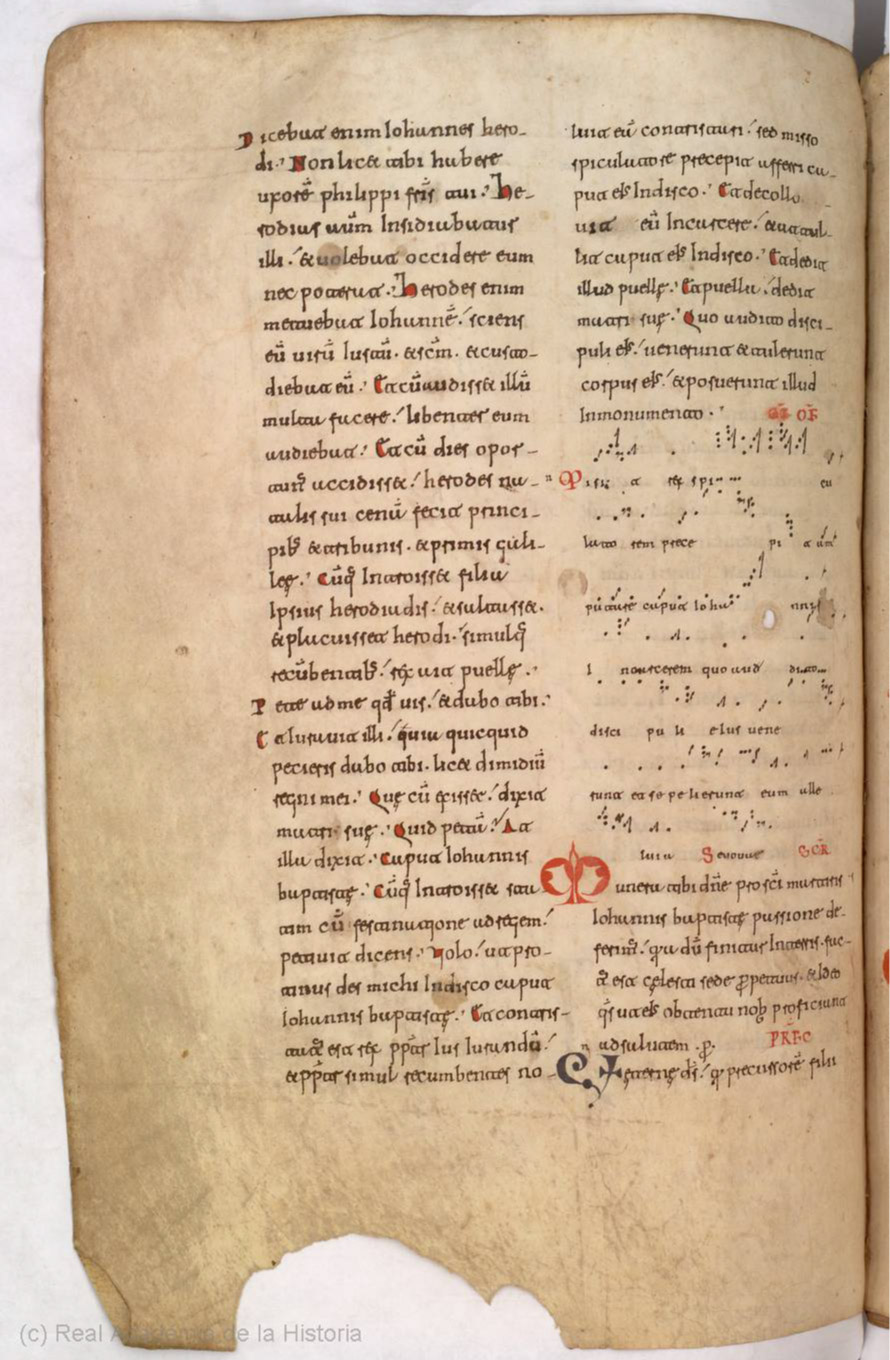 Dicebat enim Iohannes hero-
di. Non licet tibi habere
uxorē philippi fr̄is tui. he-
rodias autē Insidiabatur
illi. & uolebat occidere eum
nec poterat. herodes enim
metuebat Iohannē. sciens
eū uirū Iustū. & scm̄. & custo-
diebat eū. Et cū audisset illū
multa facere. libenter eum
audiebat. Et cū dies opor-
tun' accidisset. herodes na-
talis sui cenā fecit princi-
pib' & tribunis. & primis gali-
leę. Cūq; Introisset filia
Ipsius herodiadis. & saltasset.
& placuisset herodi. simulq;
recūbentib'. rex ait puellę.
Pete ad me qd̄ uis. & dabo tibi.
Et iurauit illi. quia quicquid
petieris dabo tibi. licet dimidiū
regni mei. Quę cū exisset. dixit
matri suę. Quid petā. At
illa dixit. Caput Iohannis
baptistę. Cūq; Introisset sta
tim cū festinatione ad regem.
petiuit dicens. Uolo. ut pro-
tinus des michi In disco caput
Iohannis baptistę. Et contris-
tat' est rex. ppt̄er Ius Iurandū.
& ppt̄er simul recumbentes no-
luit eū contristari. sed misso
spiculatore precepit afferri ca-
put ei' In disco. Et decollo
uit eū In carcere. & attul-
lit caput ei' In disco. Et dedit
illud puellę. Et puella. dedit
matri suę. Quo audito disci-
puli ei'. uenerunt & tulerunt
corpus ei'. & posuerunt illud
In monumento. OF
Misit rex spi cu
lato rem prece pi t am
putare caput Ioha nnis
I noscerem quo aud
disci pu li eius uene
runt et se pe lierunt eum alle
luia Seuouae SCR
Munera tibi dn̄e pro sc̄i martiris
Iohannis baptistę passione de-
ferim'. qui dū finitur In terris. fac-
t' est cęlesti sede ppetuus. & Ideo
qs ut ei' obtentu nob' proficiant
ad salutem. p. PREFC
ęterne ds̄. qui precussorē filii